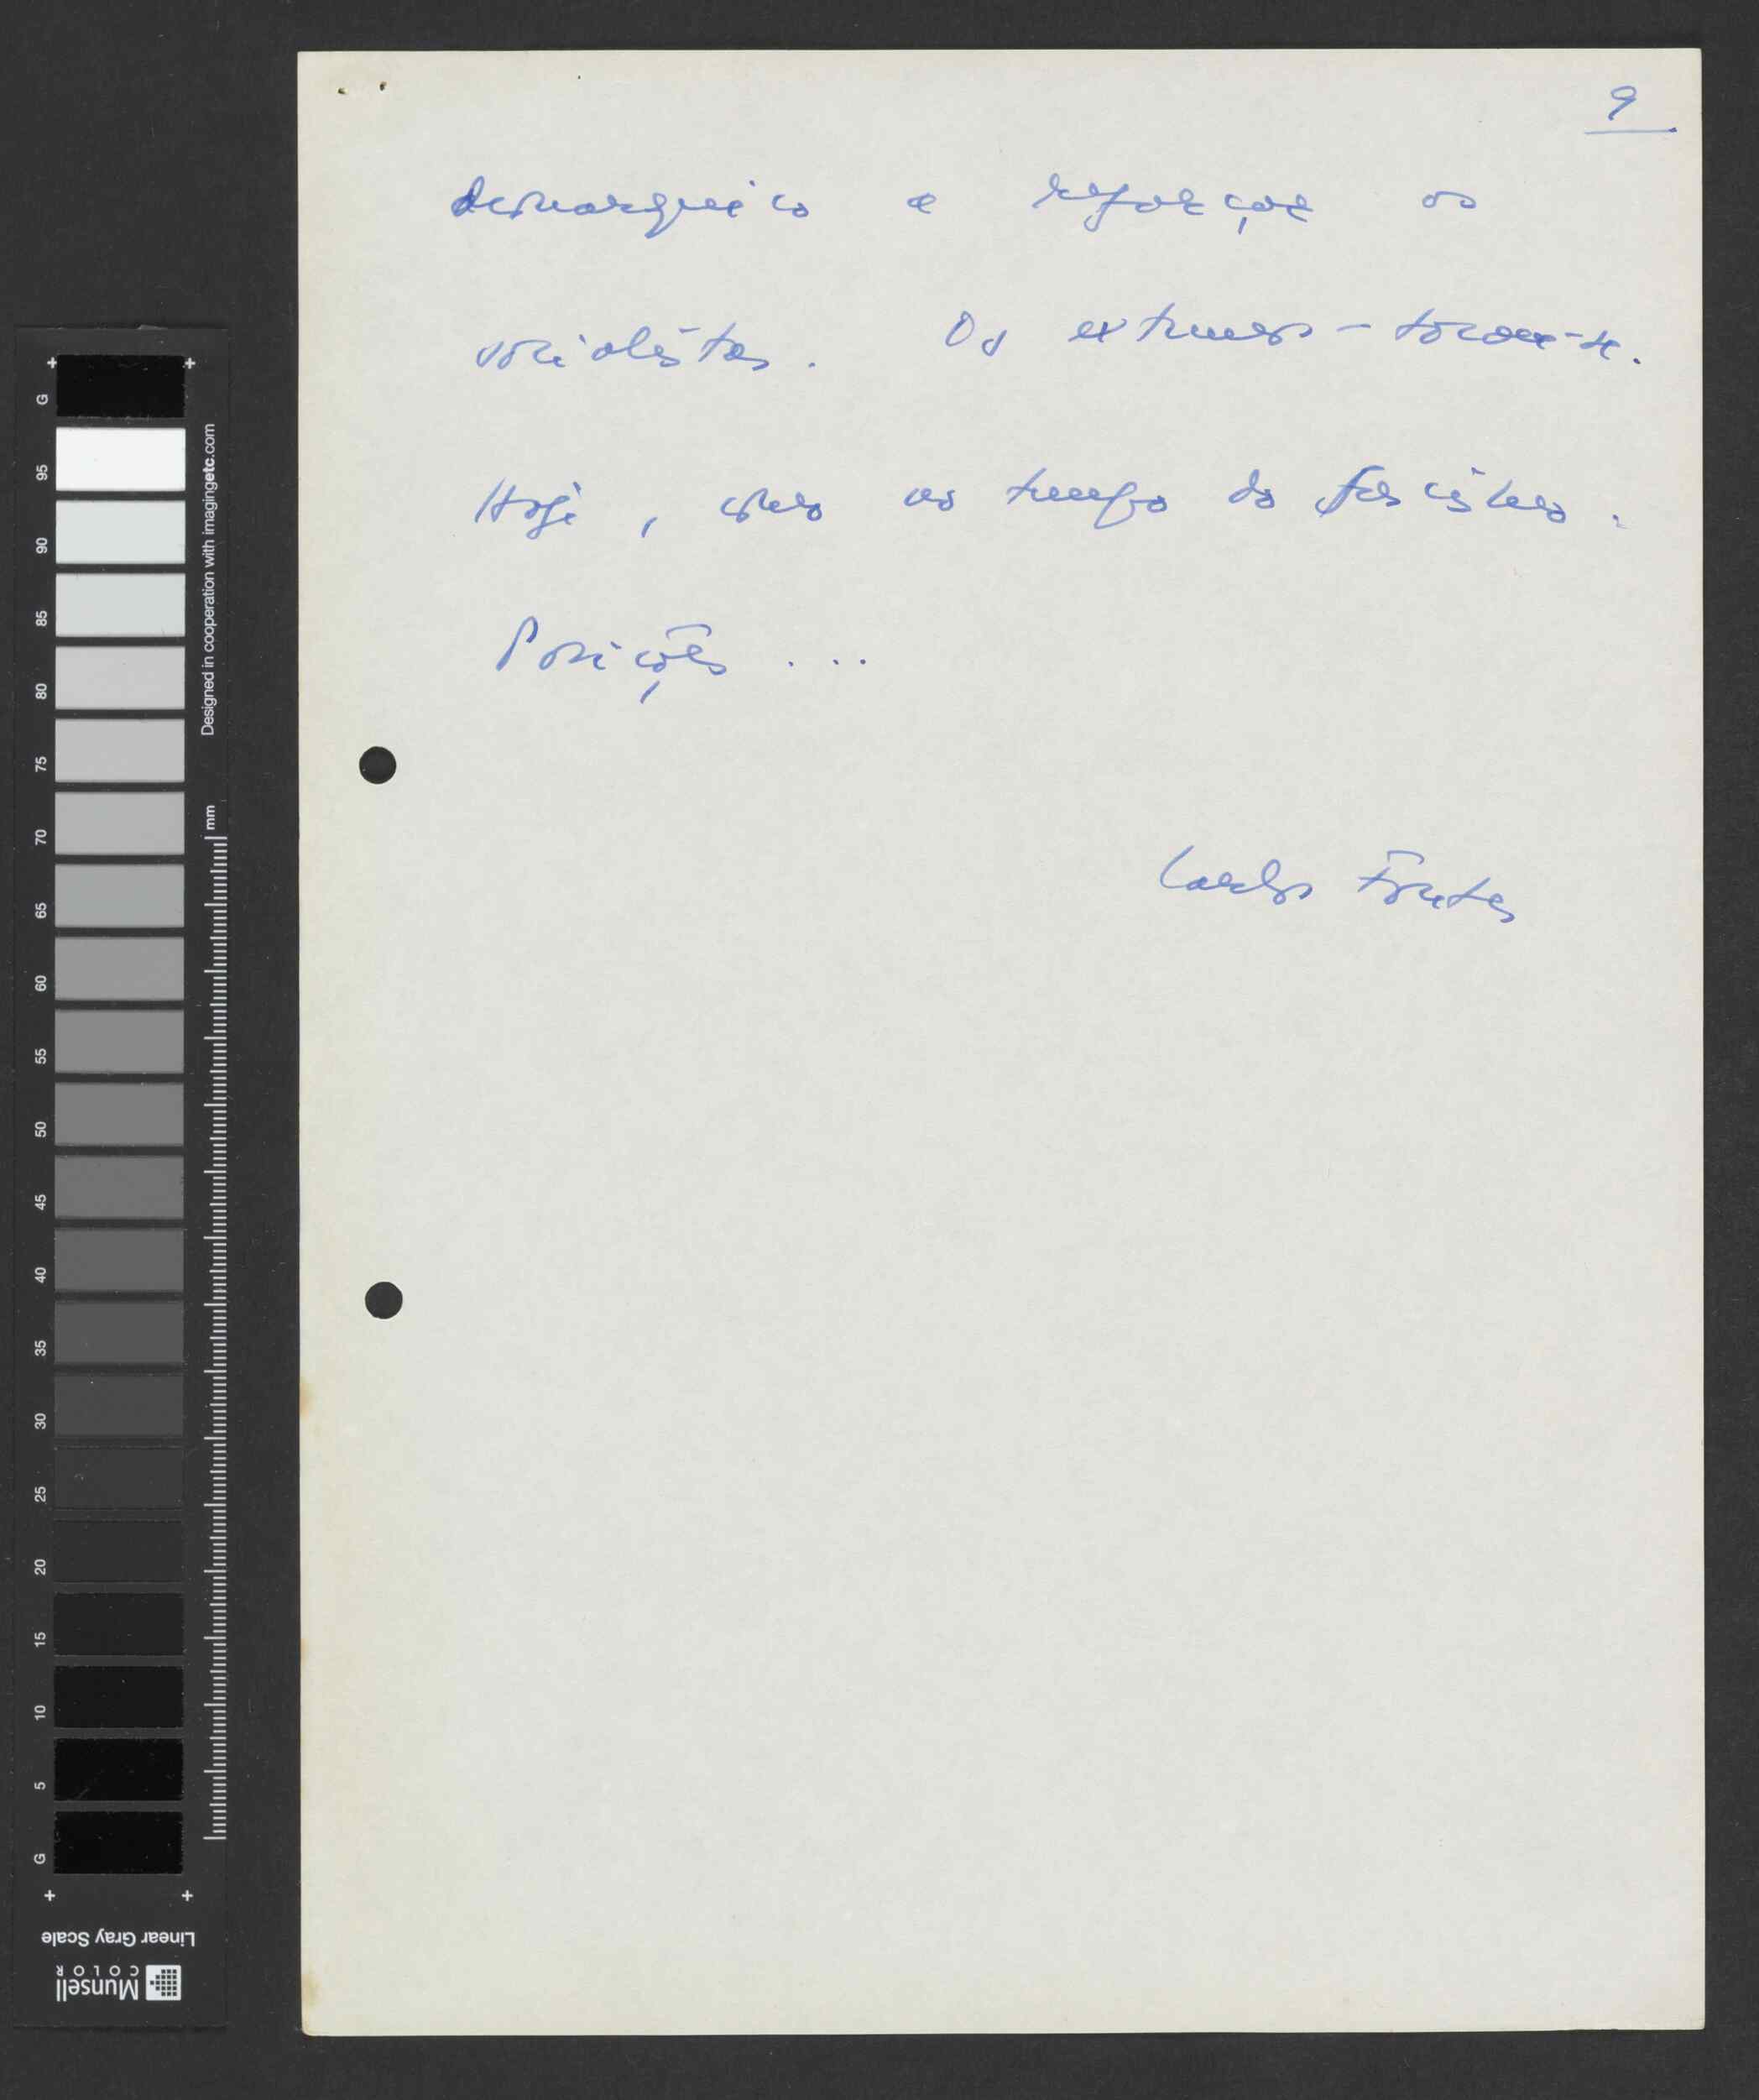 9
desmarquei co a reforçar os
socialistas. Os extremos - tocam-se.
Hoje, como no tempo do fascismo.
Posições ...
Carlos Fontes
G
95
90
85
80
75
70
65
60
55
50
45
40
35
30
25
20
15
10
5
G
Designed in cooperation with imagingetc.com
mm
Linear Gray Scale
Munsell
COLOR